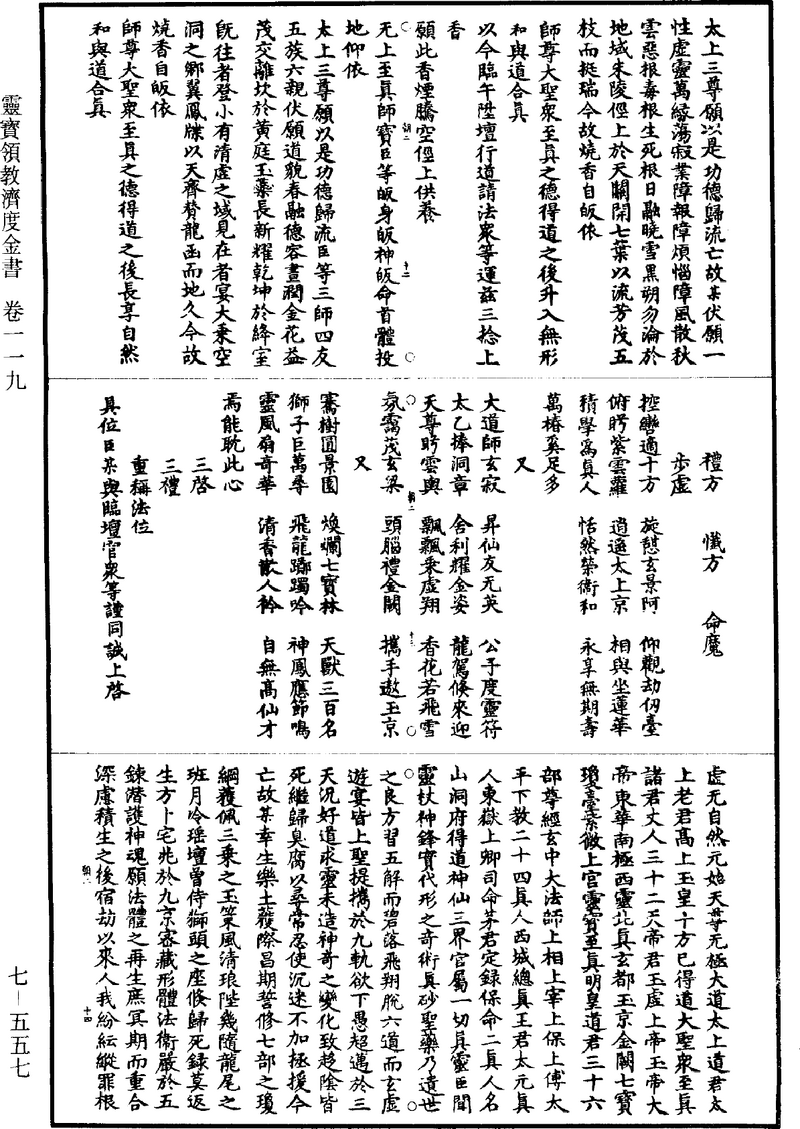 太上三尊願以是功德歸流亡故某伏願一
性虛靈萬緣蕩寂業障報障煩惱障風散秋
雲惡根毒根生死根日融曉雪黑朔勿淪於
地域朱陵俓上於天關開七葉以流芳茂五
枝而挺瑞今故燒香自皈依
師尊大聖衆至真之德得道之後升入無形
和與道合真
以今臨午陞壇行道請法衆等運茲三捻上
香
願此香煙騰空俓上供養
无上至真師寶臣等皈身皈神皈命首體投
地仰依
太上三尊願以是功德歸流臣等三師四友
五族六親伏願道貌春融德容晝潤金花益
茂交離坎於黃庭玉蘂長新耀乾坤於絳室
旣往者登小有清虛之域見在者宴大乘空
洞之鄉翼鳳牒以天齊賛龍函而地久今故
燒香自皈依
師尊大聖衆至真之德得道之後長享自然
和與道合真
禮方　懺方　命魔
步虛
控轡適十方　旋憩玄景阿　仰觀劫仞臺
俯眄紫雲蘿　逍遙太上京　相與坐蓮華
積學爲真人　恬然榮衞和　永享無期壽
萬椿奚足多
又
大道師玄寂　昇仙友无英　公子度靈符
太乙捧洞章　舍利耀金姿　龍駕倏來迎
天尊眄雲輿　飄飄乘虛翔　香花若飛雪
氛靄茂玄梁　頭腦禮金闕　攜手遨玉京
又
騫樹圓景園　煥爛七寶林　天獸三百名
獅子巨萬尋　飛龍躑躅吟　神鳳應節鳴
靈風扇奇華　清香散人衿　自無高仙才
焉能耽此心
三啓
三禮
重稱法位
具位臣某與臨壇官衆等謹同誠上啓
虛无自然元始天尊无極大道太上道君太
上老君高上玉皇十方已得道大聖衆至真
諸君丈人三十二天帝君玉虛上帝玉帝大
帝東華南極西靈北真玄都玉京金闕七寶
瓊臺紫微上宮靈寶至真明皇道君三十六
部尊經玄中大法師上相上宰上保上傅太
平下教二十四真人西城總真王君太元真
人東嶽上卿司命茅君定錄保命二真人名
山洞府得道神仙三界官屬一切真靈臣聞
靈杖神鋒寶代形之奇術真砂聖藥乃遺世
之良方習五解而碧落飛翔脫六道而玄虛
遊宴皆上聖提攜於九軌欲下愚超邁於三
天況好道求靈未造神奇之變化致趍陰皆
死繼歸臭腐以尋常忍使沉迷不加拯援今
亡故某幸生樂土穫際昌期誓修七部之瓊
綱穫佩三乘之玉策風清琅陛幾隨龍尾之
班月冷瑤壇曾侍獅頭之座倏歸死録莫返
生方卜宅兆於九京密藏形體法衞嚴於五
鍊潛護神魂願法體之再生庶冥期而重合
深慮積生之後宿劫以來人我紛紜縱罪根
靈寶領教濟度金書　卷一一九
七－五五七